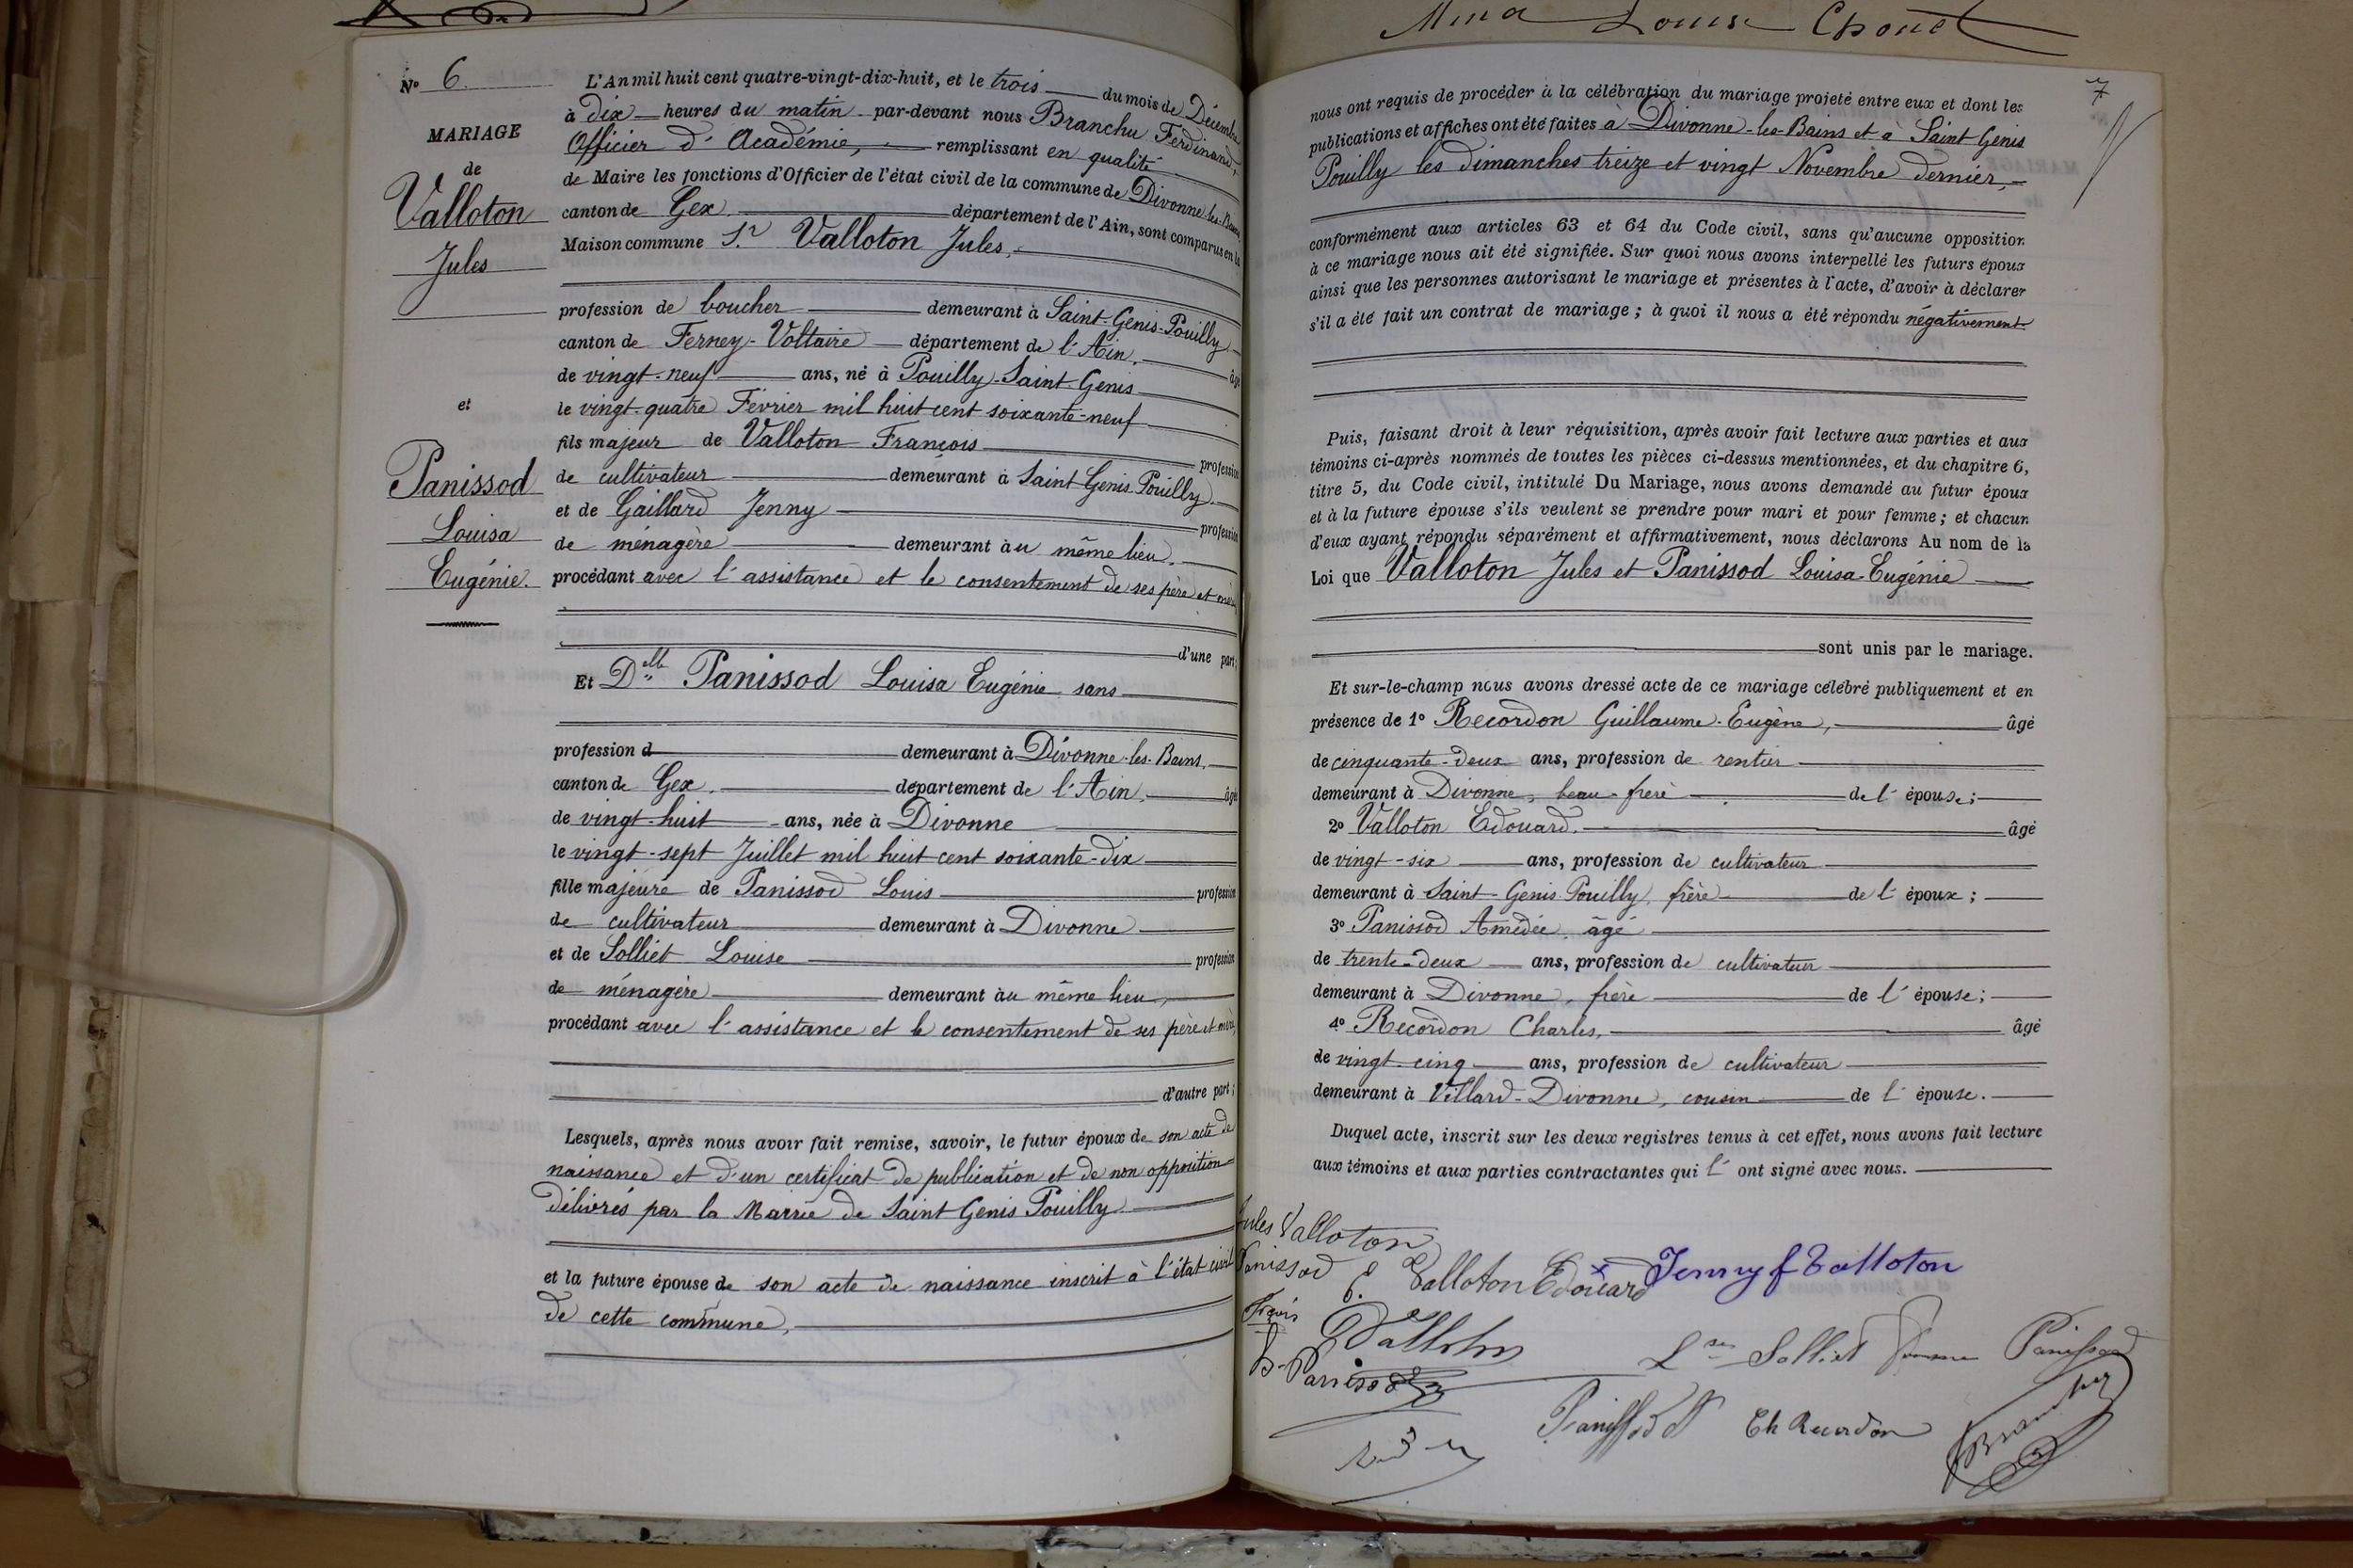 Nº 6.
MARIAGE
de
Valloton
Jules
et
Panissod
Louisa
Eugénie.
L'An mil huit cent quatre-vingt-dix-huit, et le trois du mois de Décembre
à dix heures du matin par-devant nous Branchu Ferdinand,
Officier d'Académie, remplissant en qualité
de Maire les fonctions d'Officier de l'état civil de la commune de Divonne-les-Bains,
canton de Gex département de l'Ain, sont comparus en la
Maison commune Sr Valloton Jules,
profession de boucher demeurant à Saint-Genis-Pouilly
canton de Ferney-Voltaire département de l'Ain, âgé
de vingt-neuf ans, né à Pouilly-Saint-Genis
le vingt-quatre Février mil huit cent soixante-neuf
fils majeur de Valloton François profession
de cultivateur demeurant à Saint Genis Pouilly
et de Gaillard Jenny profession
de ménagère demeurant au même lieu,
procédant avec l'assistance et le consentement de ses père et mère
d'une part;
Et Delle Panissod Louisa Eugénie sans
profession d demeurant à Divonne-les-Bains,
canton de Gex. département de l'Ain, âgée
de vingt-huit ans, née à Divonne
le vingt-sept Juillet mil huit cent soixante-dix
fille majeure de Panissod Louis profession
de cultivateur demeurant à Divonne
et de Solliet Louise profession
de ménagère demeurant au même lieu,
procédant avec l'assistance et le consentement de ses père et mère,
d'autre part;
Lesquels, après nous avoir fait remise, savoir, le futur époux de son acte de
naissance et d'un certificat de publication et de non opposition
délivrés par la Mairie de Saint Genis Pouilly
et la future épouse de son acte de naissance inscrit à l'état civil
de cette commune,
Louise Chouet
7
nous ont requis de procéder à la célébration du mariage projeté entre eux et dont les
publications et affiches ont été faites à Divonne-les-Bains et à Saint Genis
Pouilly les dimanches treize et vingt Novembre dernier,
conformément aux articles 63 et 64 du Code civil, sans qu'aucune opposition
à ce mariage nous ait été signifiée. Sur quoi nous avons interpellé les futurs époux
ainsi que les personnes autorisant le mariage et présentes à l'acte, d'avoir à déclarer
s'il a été fait un contrat de mariage; à quoi il nous a été répondu négativement
Puis, faisant droit à leur réquisition, après avoir fait lecture aux parties et aux
témoins ci-après nommés de toutes les pièces ci-dessus mentionnées, et du chapitre 6,
titre 5, du Code civil, intitulé Du Mariage, nous avons demandé au futur époux
et à la future épouse s'ils veulent se prendre pour mari et pour femme; et chacun
d'eux ayant répondu séparément et affirmativement, nous déclarons Au nom de la
Loi que Valloton Jules et Panissod Louisa-Eugénie
sont unis par le mariage.
Et sur-le-champ nous avons dressé acte de ce mariage célébré publiquement et en
présence de 1º Recordon Guillaume-Eugène, âgé
de cinquante-deux ans, profession de rentier
demeurant à Divonne, beau-frère de l'épouse;
2º Valloton Edouard. âgé
de vingt-six ans, profession de cultivateur
demeurant à Saint-Genis-Pouilly, frère de l'époux;
3º Panissod Amédée, âgé
de trente-deux ans, profession de cultivateur
demeurant à Divonne, frère de l'épouse;
4º Recordon Charles, âgé
de vingt-cinq ans, profession de cultivateur
demeurant à Villard-Divonne, cousin de l'épouse.
Duquel acte, inscrit sur les deux registres tenus à cet effet, nous avons fait lecture
aux témoins et aux parties contractantes qui l'ont signé avec nous.
Jules Valloton
Panissod E. Valloton Edouard Jenny f Valloton
Valloton
Lse Solliet femme Panissod
Panissod
Panissod Ch Recordon Branchu